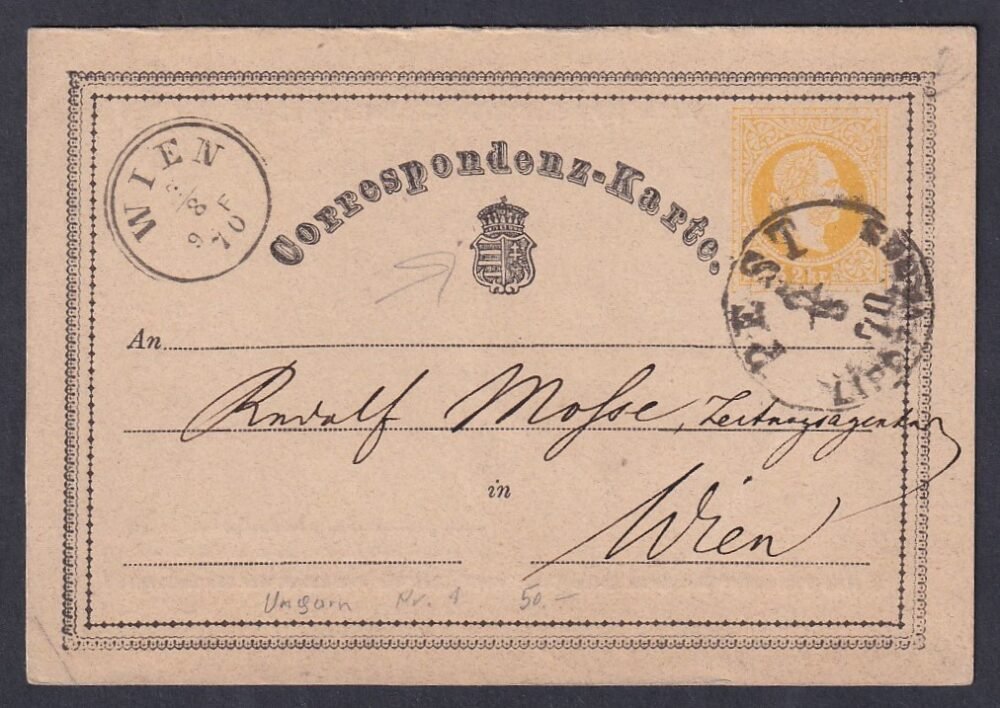 Correspondenz-Karte.
WIEN
8
9 F
70
2 kr
PEST
70
An
Rudolf Mosse, Zeitungsagentur
in
Wien
Ungarn Nr. 1 50.—